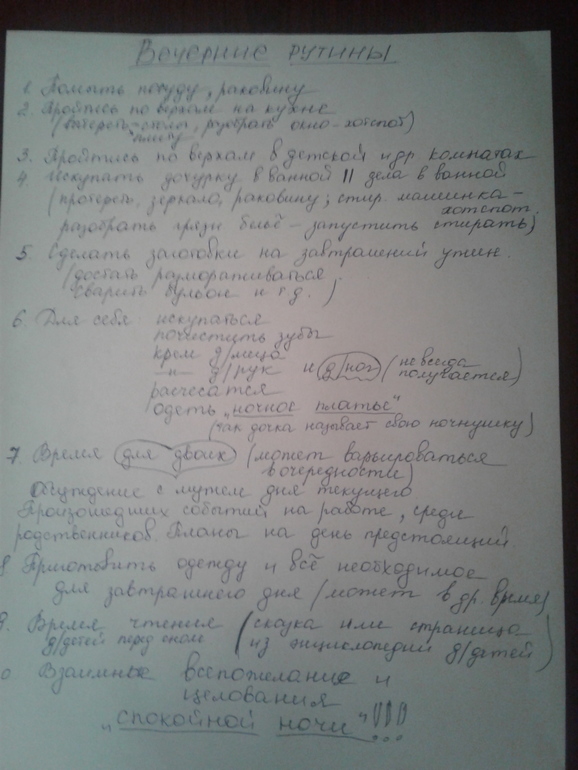 Вечерние рутины
1. Помыть посуду, раковину
2. Пройтись по верхам на кухне
(вытереть столы, разобрать окно-хотспот)
плиту
3. Пройтись по верхам в детской и др комнатах
4. Искупать дочурку в ванной || дела в ванной
(протереть, зеркало, раковину; стир. машинка-
хотспот.
разобрать грязн бельё - запустить стирать)
5. Сделать заготовки на завтрашний ужин.
(достать размораживаться.
сварить бульон и т.д.)
6. Для себя искупаться
почистить зубы
крем д/лица
-"- д/рук и д/ног (не всегда
получается)
расчесатся
одеть "ночное платье"
(так дочка называет свою ночнушку)
7. Время для двоих (может варьироваться
в очередности)
Обсуждение с мужем дня текущего
Произошедших событий на работе, среди
родственников. Планы на день предстоящий
Приготовить одежду и всё необходимое
для завтрашнего дня (может в др. время)
9. Время чтения (сказка или страница
д/детей перед сном из энциклопедий д/детей)
Взаимные всепожелание и
целования
"спокойной ночи"!!!